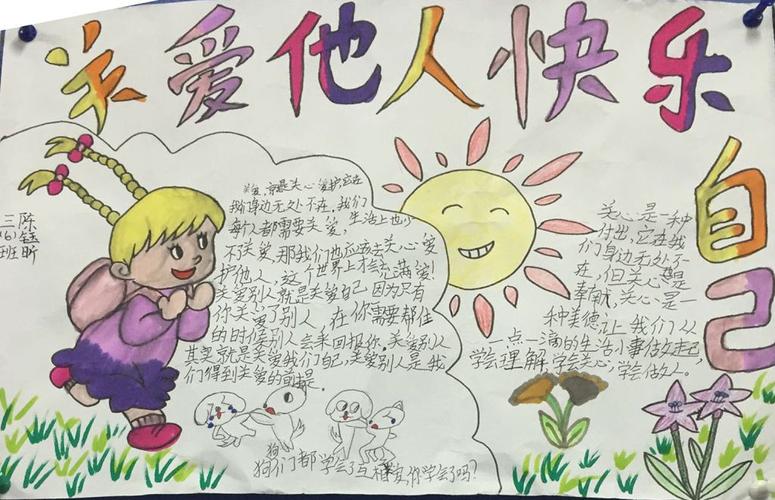 关爱他人快乐
自己
三(6)班
陈钰昕
关爱,就是关心爱护它在
我们身边无处不在,我们
每个人都需要关爱,生活上也少
不了关爱,那我们也应该去关心爱
护他人,这个世界上才会充满爱!
关爱别人就是关爱自己,因为只有
你关爱了别人,在你需要帮住
的时候别人会来回报你,关爱别人
其实就是关爱我们自己,关爱别人是我
们得到关爱的前提.
关心是一种
付出,它在我
们身边无处不
在,但关心是
奉献,关心是一
种美德,让我们从
一点一滴的生活小事做起
学会理解,学会关心,学会做人。
狗
狗们都学会了互相爱,你学会了吗?